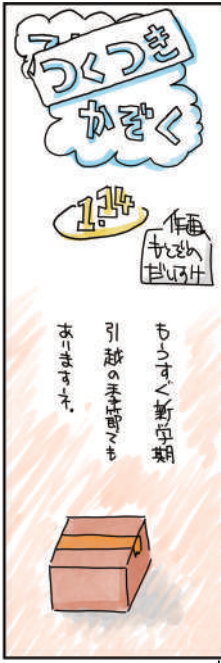 つくつき
かぞく
1.14
作画
もとどの
だいすけ
もうすぐ新学期
引越の季節でも
ありますネ。